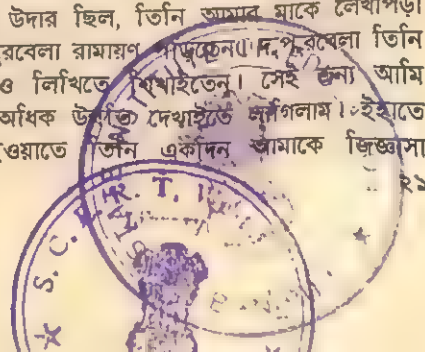 উদার ছিল, তিনি আমার মাকে লেখাপড়া
রবেলা রামায়ণ পড়তেন। দুপুরবেলা তিনি
ও লিখিতে শিখাইতেন। সেই জন্য আমি
অধিক উন্নতি দেখাইতে লাগিলাম। ইহাতে
ওয়াতে তিনি একদিন আমাকে জিজ্ঞাসা
২১
S. C. E. R. T.